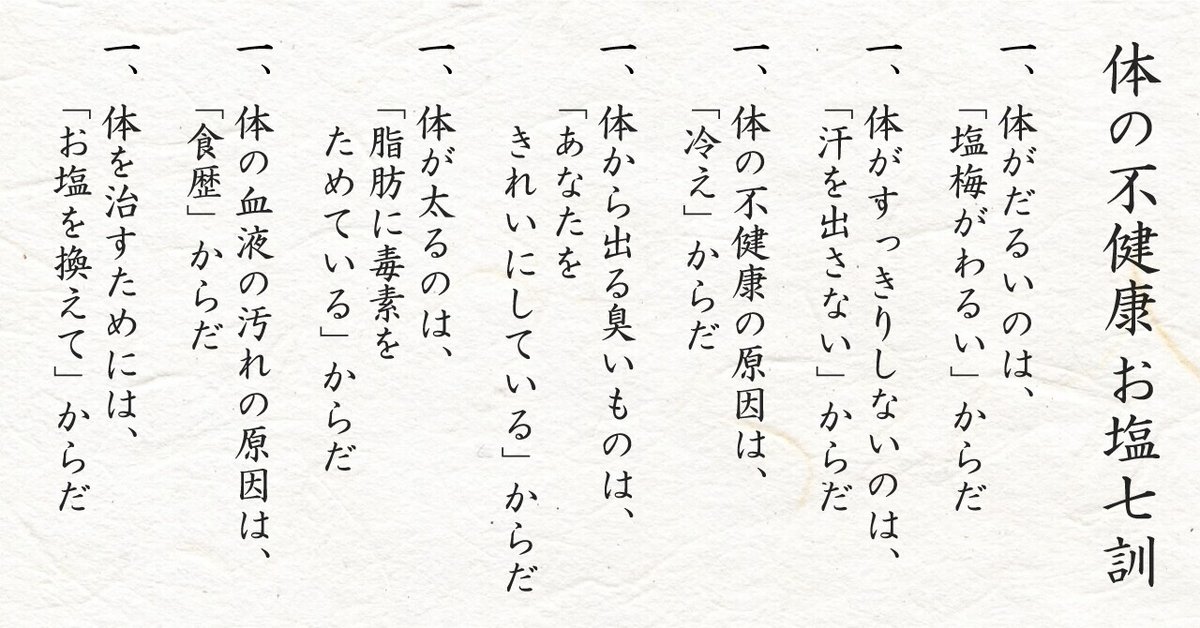 体の不健康 お塩七訓
一、体がだるいのは、
「塩梅がわるい」からだ
一、体がすっきりしないのは、
「汗を出さない」からだ
一、体の不健康の原因は、
「冷え」からだ
一、体から出る臭いものは、
「あなたを
きれいにしている」からだ
一、体が太るのは、
「脂肪に毒素を
ためている」からだ
一、体の血液の汚れの原因は、
「食歴」からだ
一、体を治すためには、
「お塩を換えて」からだ